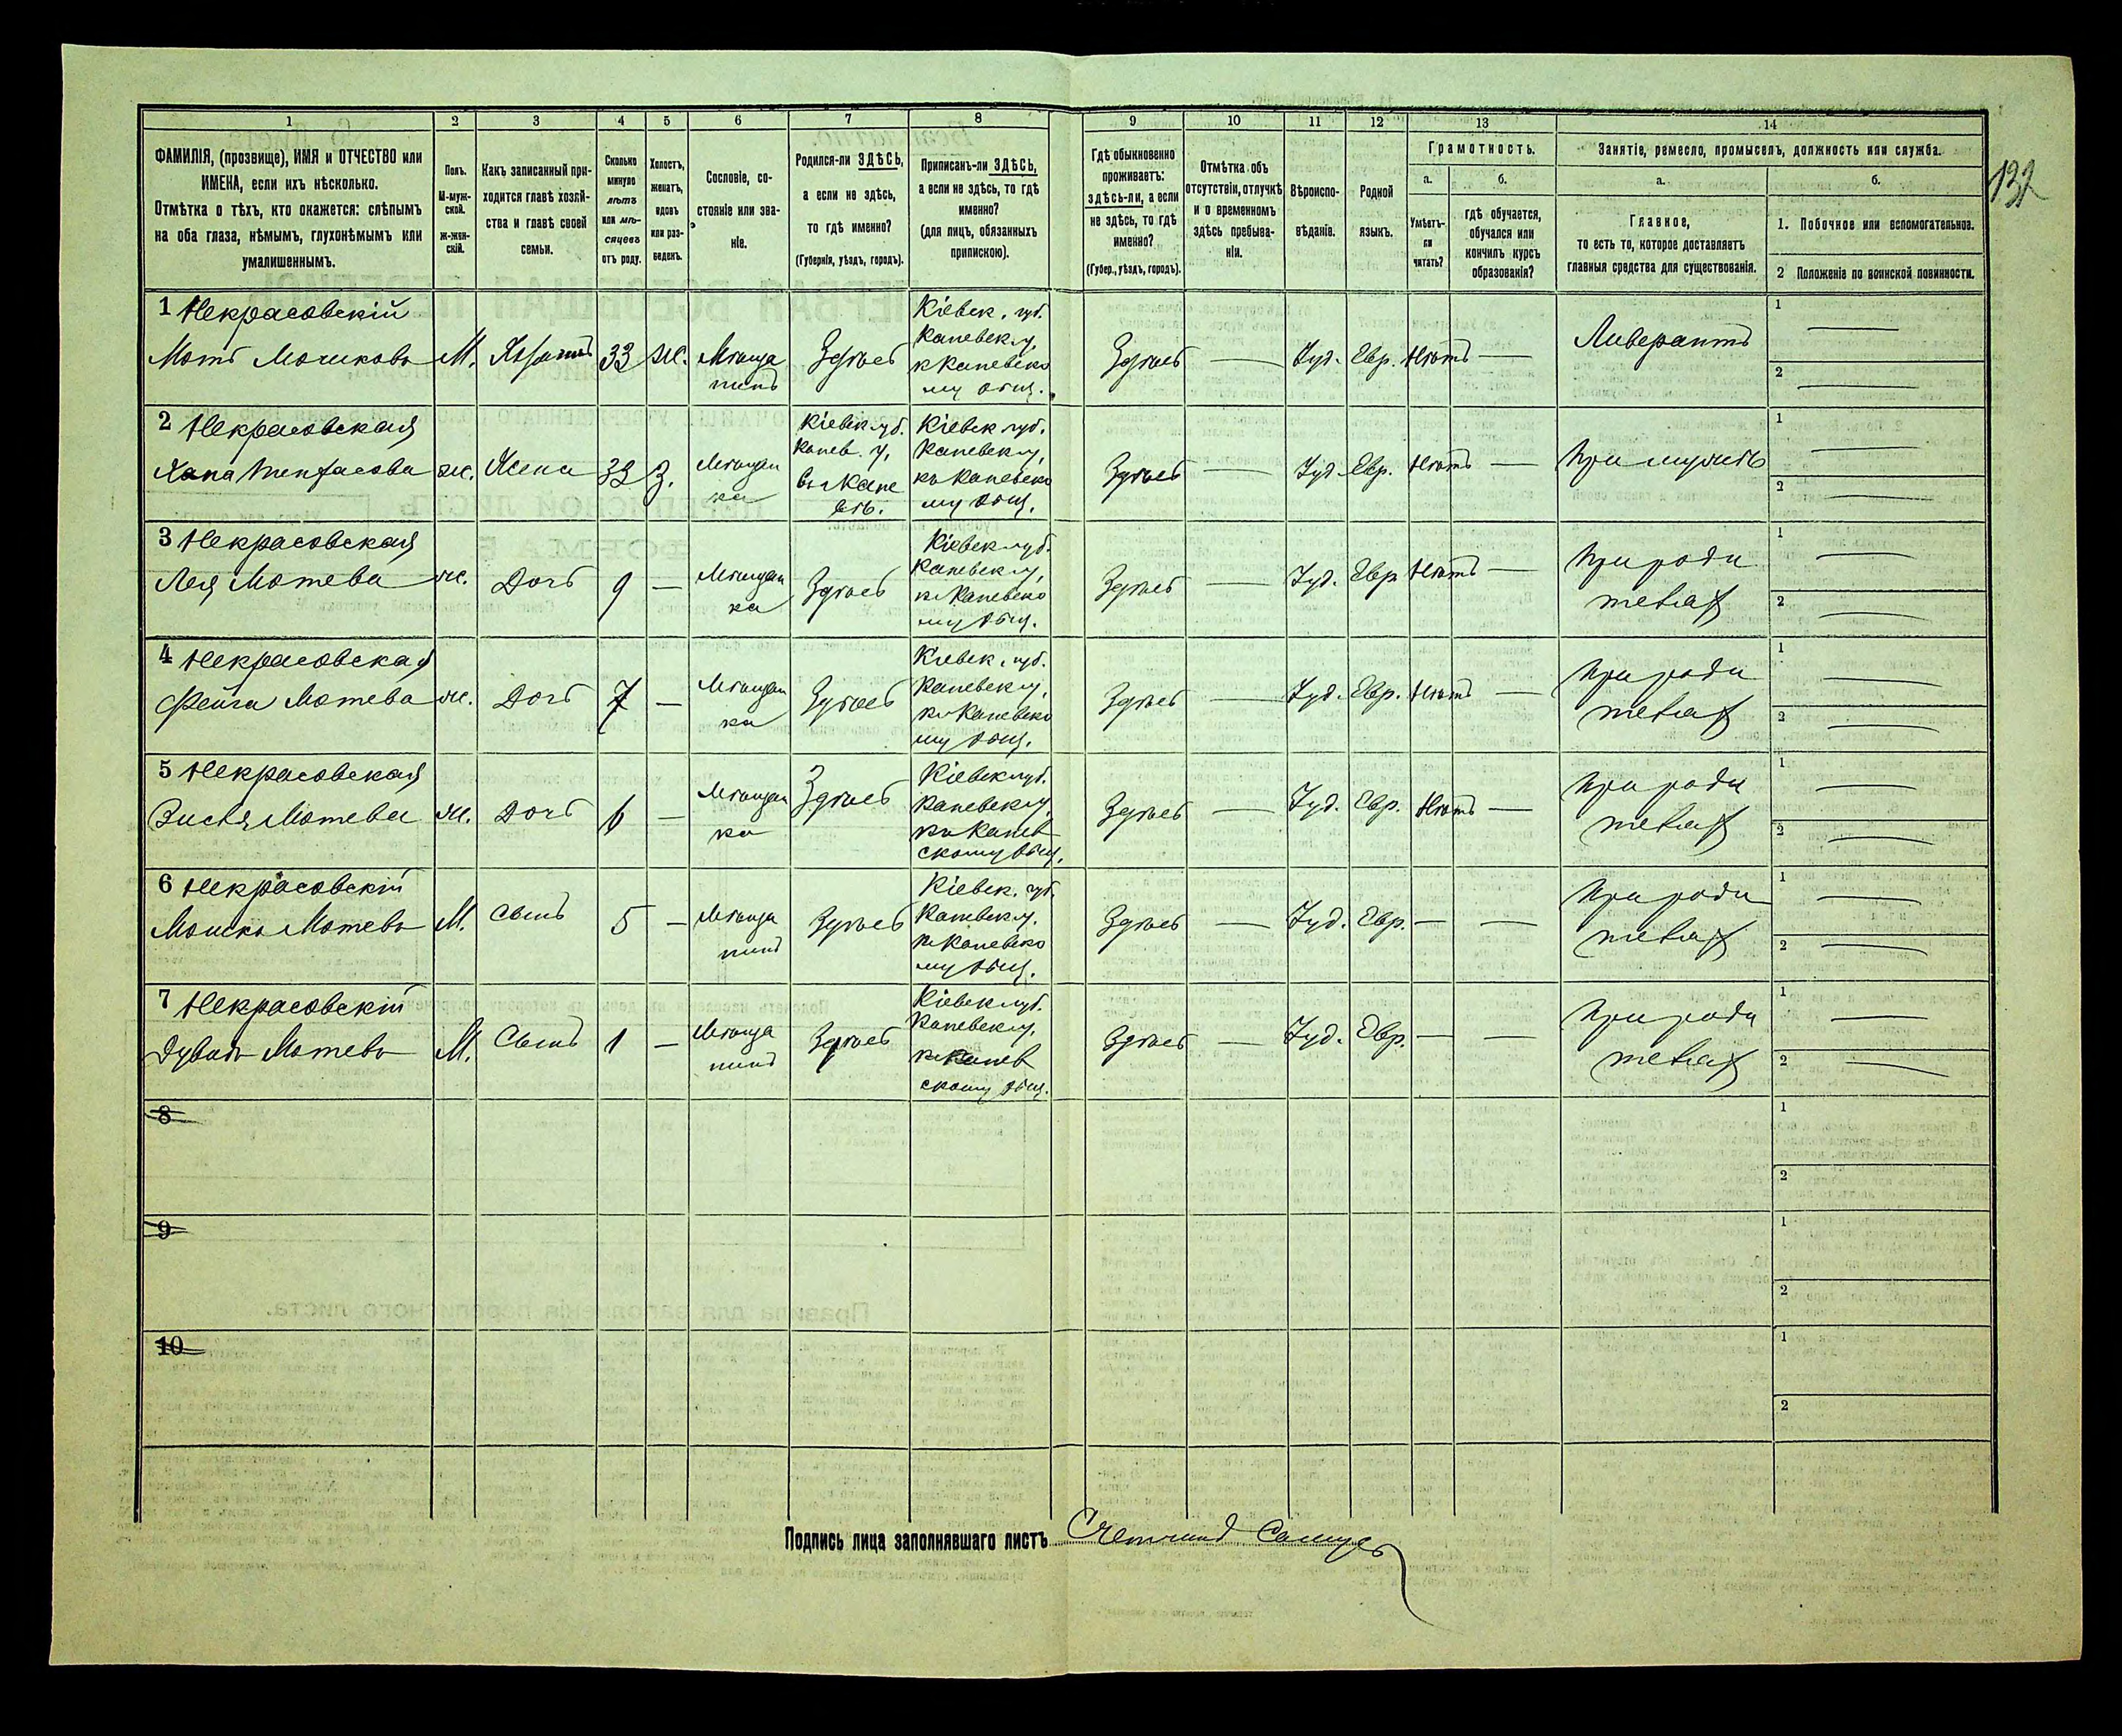 132
1 2 3 4 5 6 7 8 9 10 11 12 13 14
ФАМИЛІЯ, (прозвище), ИМЯ и ОТЧЕСТВО или
ИМЕНА, если ихъ нѣсколько.
Отмѣтка о тѣхъ, кто окажется: слѣпымъ
на оба глаза, нѣмымъ, глухонѣмымъ или
умалишеннымъ.
Полъ.
М-муж-
ской.
Ж-жен-
скій.
Какъ записанный при-
ходится главѣ хозяй-
ства и главѣ своей
семьи.
Сколько
минуло
лѣтъ
или мѣ-
сяцевъ
отъ роду.
Холостъ,
женатъ,
вдовъ
или раз-
веденъ.
Сословіе, со-
стояніе или зва-
ніе.
Родился-ли ЗДѢСЬ,
а если не здѣсь,
то гдѣ именно?
(Губернія, уѣздъ, городъ).
Приписанъ-ли ЗДѢСЬ,
а если не здѣсь, то гдѣ
именно?
(для лицъ, обязанныхъ
припискою).
Гдѣ обыкновенно
проживаетъ:
здѣсь-ли, а если
не здѣсь, то гдѣ
именно?
(Губер., уѣздъ, городъ).
Отмѣтка объ
отсутствіи, отлучкѣ
и о временномъ
здѣсь пребыва-
ніи.
Вѣроиспо-
вѣданіе.
Родной
языкъ.
Грамотность.
а.
Умѣетъ-
ли
читать?
б.
гдѣ обучается,
обучался или
кончилъ курсъ
образованія?
Занятіе, ремесло, промыселъ, должность или служба.
а.
Главное,
то есть то, которое доставляетъ
главныя средства для существованія.
б.
1. Побочное или вспомогательное.
2 Положеніе по воинской повинности.
1 Некрасовскій
Мотъ
М.
33
же.
Мѣща
нинъ
Здѣсь
Кіевск. губ.
Каневск у,
к Каневско
му общ.
Здѣсь
Іуд.
Евр.
Нѣтъ
Ливерантъ
1
2
2 Некрасовская
Хана
же.
Жена
33
З.
Мѣщан
ка
Кіевск губ.
Канев. у,
Каневск у,
къ Каневско
му общ.
Здѣсь
Іуд.
Евр.
Нѣтъ
При мужѣ
1
2
3 Некрасовская
Лея Мотева
же.
Дочь
9
Мѣщан
ка
Здѣсь
Кіевск губ.
Каневск у,
къ Каневско
му общ.
Здѣсь
Іуд.
Евр
Нѣтъ
При роди
теляхъ
1
2
4 Некрасовская
Фейга Мотева
же.
Дочь
7
Мѣщан
ка
Здѣсь
Кіевск. губ.
Каневск у,
къ Каневско
му общ.
Здѣсь
Іуд.
Евр.
Нѣтъ
При роди
теляхъ
1
2
5 Некрасовская
Зися Мотева
же.
Дочь
6
Мѣщан
ка
Здѣсь
Кіевск губ.
Каневск у,
къ Канев
скому общ.
Здѣсь
Іуд.
Евр.
Нѣтъ
При роди
теляхъ
1
2
6 Некрасовскій
Мошко Мотевъ
М.
Сынъ
5
Мѣща
нинъ
Здѣсь
Кіевск. губ.
Каневск у.
къ Каневско
му общ.
Здѣсь
Іуд.
Евр.
При роди
теляхъ
1
2
7 Некрасовскій
Дувидъ Мотевъ
М.
Сынъ
1
Мѣща
нинъ
Здѣсь
Кіевск губ.
Каневск у,
къ Канев
скому общ.
Здѣсь
Іуд.
Евр.
При роди
теляхъ
1
2
8
1
2
9
1
2
10
1
2
Подпись лица заполнявшаго листъ Счетчикъ